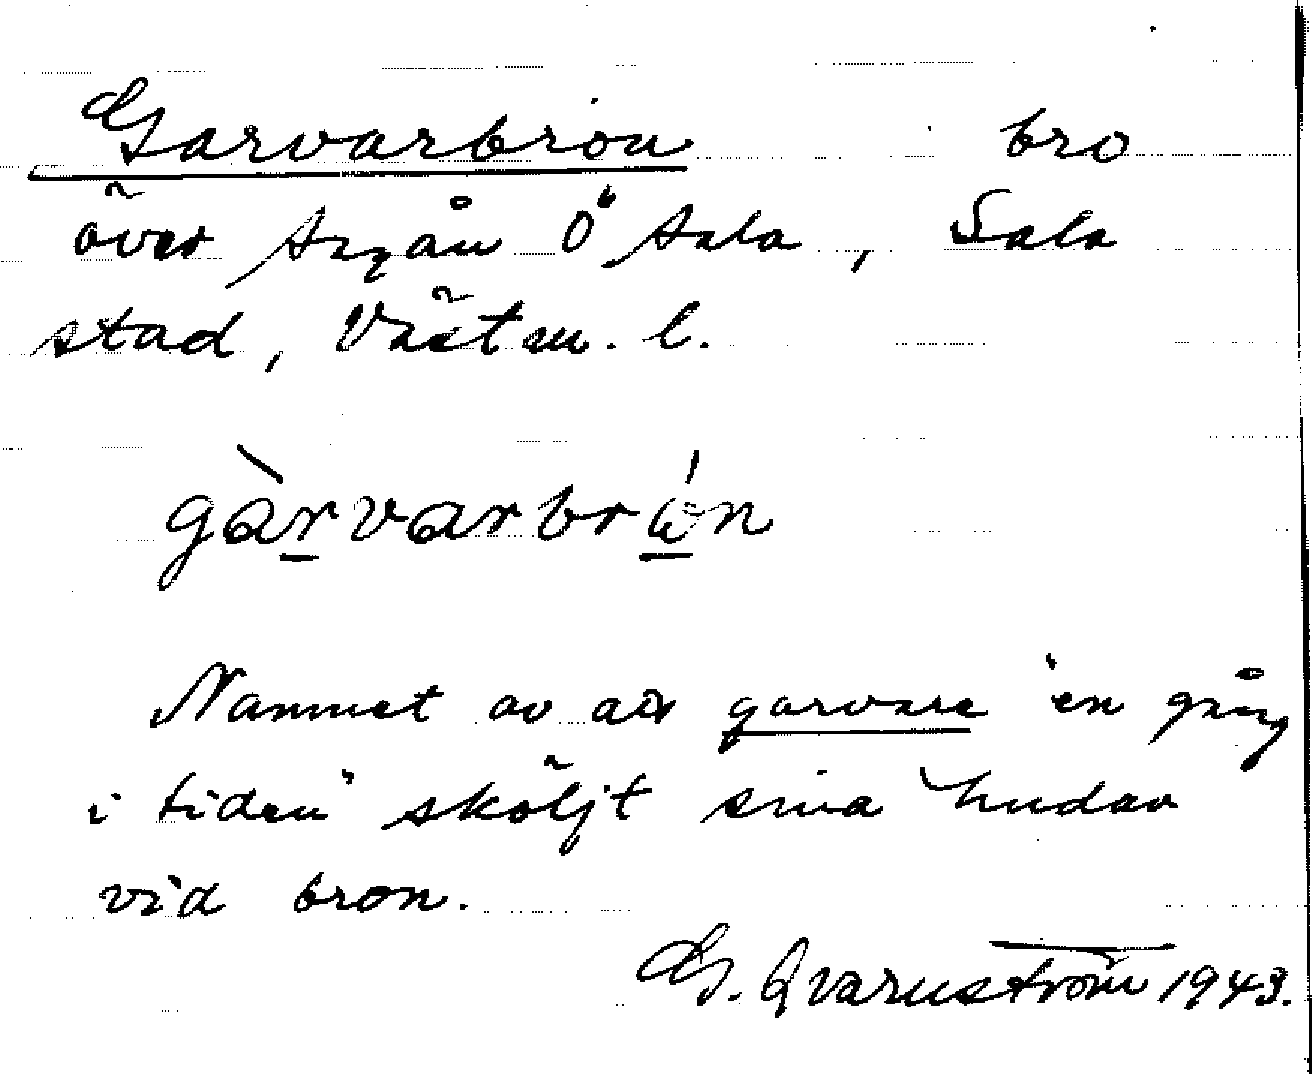 Garvarbron bro
över Sagån Ö Sala, Sala
stad, Västm. l.
gàrvarbrón
Namnet av att garvare "en gång
i tiden" sköljt sina hudar
vid bron.
G. Qvarnström 1943.